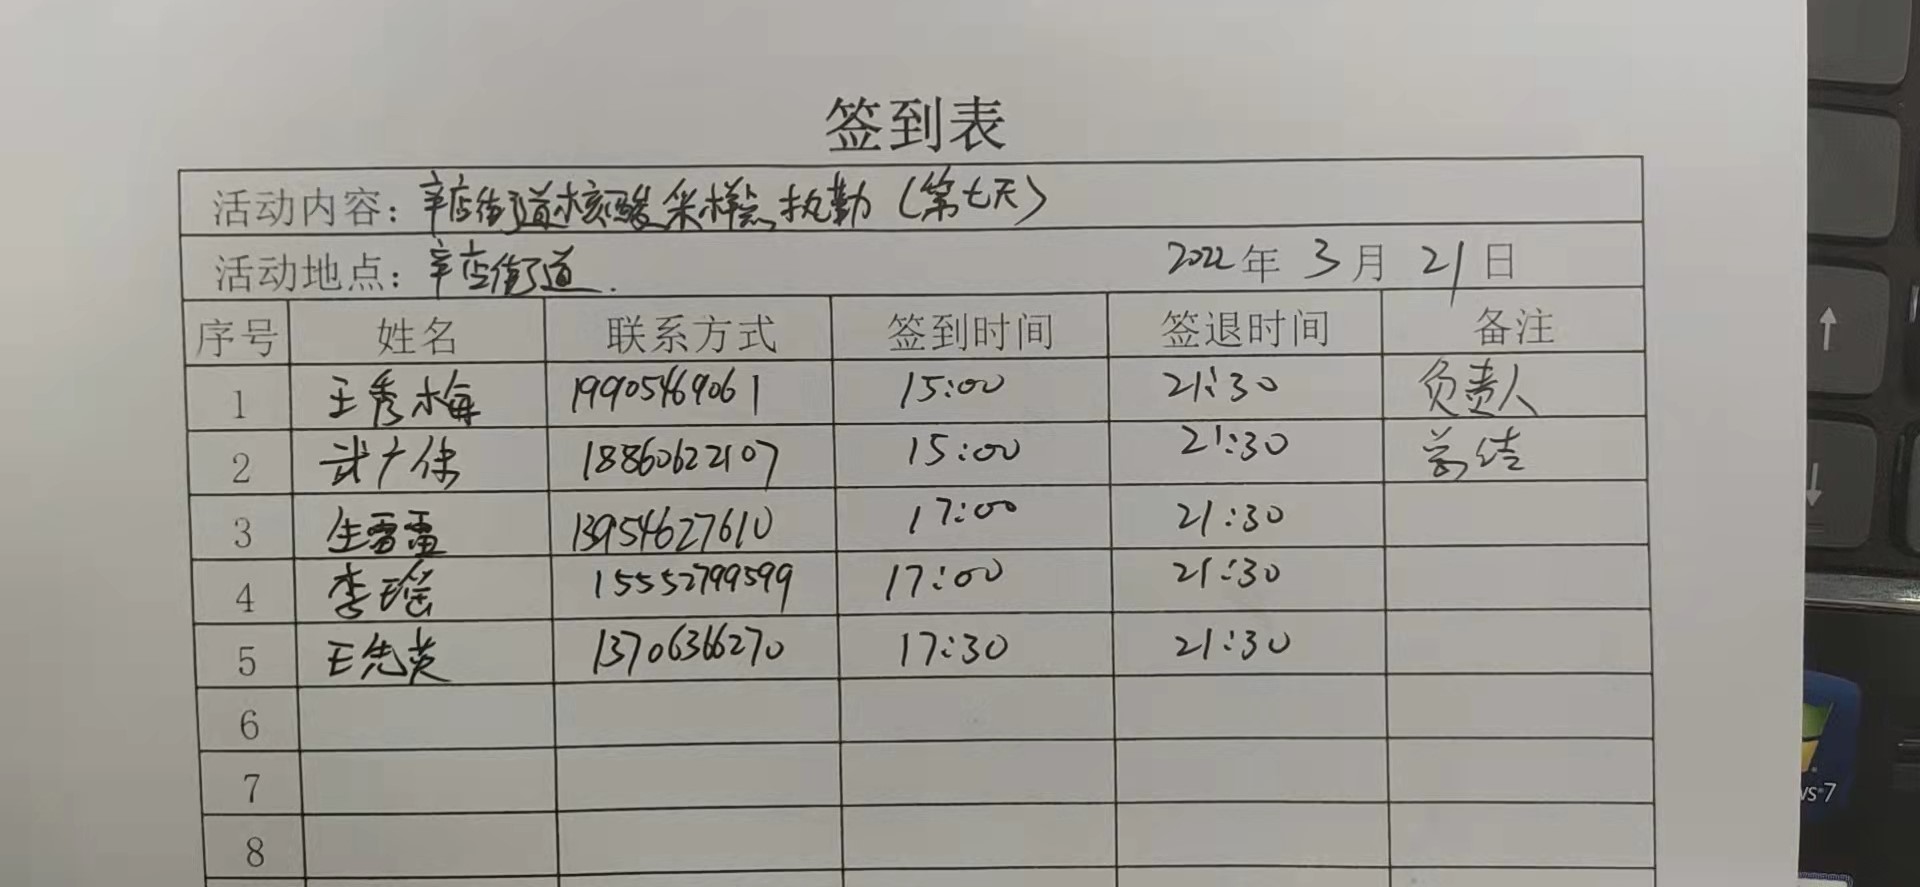 签到表
活动内容：辛店街道核酸采样点执勤（第七天）
活动地点：辛店街道. 2022年 3月 21日
序号 姓名 联系方式 签到时间 签退时间 备注
1 王秀梅 19905469061 15:00 21:30 负责人
2 武广保 18860622107 15:00 21:30 总结
3 生雷雷 13954627610 17:00 21:30
4 李瑶 15552799599 17:00 21:30
5 王先英 13706366270 17:30 21:30
6
7
8